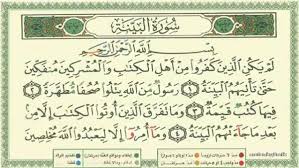 سُورَةُ الْبَيِّنَةِ
بِسْمِ اللَّهِ الرَّحْمَٰنِ الرَّحِيمِ
لَمْ يَكُنِ الَّذِينَ كَفَرُوا مِنْ أَهْلِ الْكِتَابِ وَالْمُشْرِكِينَ مُنفَكِّينَ
حَتَّىٰ تَأْتِيَهُمُ الْبَيِّنَةُ ١ رَسُولٌ مِّنَ اللَّهِ يَتْلُو صُحُفًا مُّطَهَّرَةً ٢
فِيهَا كُتُبٌ قَيِّمَةٌ ٣ وَمَا تَفَرَّقَ الَّذِينَ أُوتُوا الْكِتَابَ إِلَّا مِن
بَعْدِ مَا جَاءَتْهُمُ الْبَيِّنَةُ ٤ وَمَا أُمِرُوا إِلَّا لِيَعْبُدُوا اللَّهَ مُخْلِصِينَ